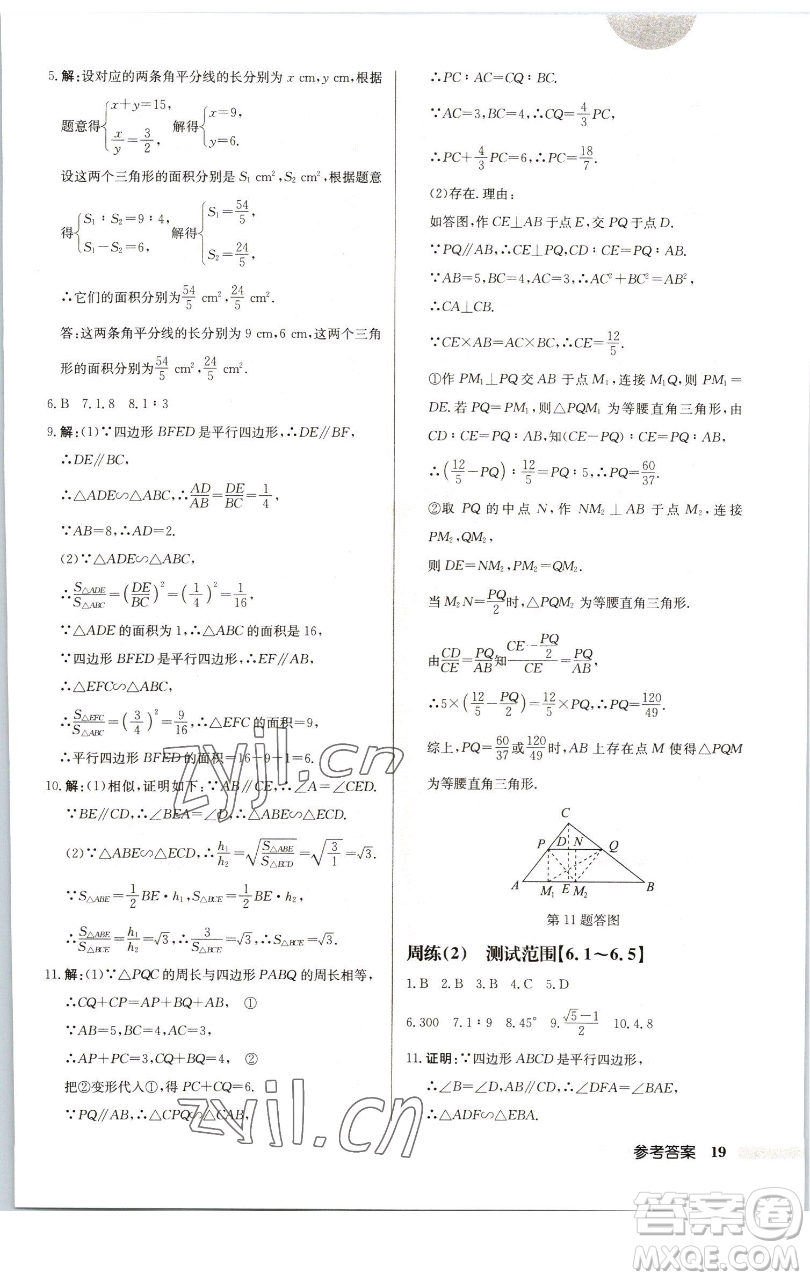 5. 解:设对应的两条角平分线的长分别为 x cm, y cm, 根据
题意得{x+y=15, x/y=3/2, 解得{x=9, y=6.
设这两个三角形的面积分别是 S₁ cm², S₂ cm², 根据题意
得{S₁∶S₂=9∶4, S₁-S₂=6, 解得{S₁=54/5, S₂=24/5.
∴它们的面积分别为 54/5 cm², 24/5 cm².
答:这两条角平分线的长分别为 9 cm, 6 cm, 这两个三角
形的面积分别为 54/5 cm², 24/5 cm².
6. B 7. 1.8 8. 1∶3
9. 解:(1)∵四边形 BFED 是平行四边形,∴DE∥BF,
∴DE∥BC,
∴△ADE∽△ABC,∴AD/AB=DE/BC=1/4,
∵AB=8,∴AD=2.
(2)∵△ADE∽△ABC,
∴S△ADE/S△ABC=(DE/BC)²=(1/4)²=1/16,
∵△ADE 的面积为 1,∴△ABC 的面积是 16,
∵四边形 BFED 是平行四边形,∴EF∥AB,
∴△EFC∽△ABC,
∴S△EFC/S△ABC=(3/4)²=9/16,∴△EFC 的面积=9,
∴平行四边形 BFED 的面积=16-9-1=6.
10. 解:(1)相似,证明如下:∵AB∥CE,∴∠A=∠CED.
∵BE∥CD,∴∠BEA=∠D,∴△ABE∽△ECD.
(2)∵△ABE∽△ECD,∴h₁/h₂=√(S△ABE/S△ECD)=√(3/1)=√3,
∵S△ABE=1/2 BE·h₁,S△BCE=1/2 BE·h₂,
∴S△ABE/S△BCE=h₁/h₂=√3,∴S△BCE=√3.
11. 解:(1)∵△PQC 的周长与四边形 PABQ 的周长相等,
∴CQ+CP=AP+BQ+AB, ①
∵AB=5,BC=4,AC=3,
∴AP+PC=3,CQ+BQ=4, ②
把②变形代入①,得 PC+CQ=6.
∵PQ∥AB,∴△CPQ∽△CAB,
∴PC∶AC=CQ∶BC.
∵AC=3,BC=4,∴CQ=4/3 PC,
∴PC+4/3 PC=6,∴PC=18/7.
(2)存在.理由:
如答图,作 CE⊥AB 于点 E,交 PQ 于点 D.
∵PQ∥AB,∴CE⊥PQ,CD∶CE=PQ∶AB.
∵AB=5,BC=4,AC=3,∴AC²+BC²=AB²,
∴CA⊥CB.
∵CE×AB=AC×BC,∴CE=12/5.
①作 PM₁⊥PQ 交 AB 于点 M₁,连接 M₁Q,则 PM₁=
DE. 若 PQ=PM₁,则△PQM₁ 为等腰直角三角形,由
CD∶CE=PQ∶AB,知(CE-PQ)∶CE=PQ∶AB,
∴(12/5-PQ)∶12/5=PQ∶5,∴PQ=60/37.
②取 PQ 的中点 N,作 NM₂⊥AB 于点 M₂,连接
PM₂,QM₂,
则 DE=NM₂,PM₂=QM₂.
当 M₂N=PQ/2 时,△PQM₂ 为等腰直角三角形.
由 CD/CE=PQ/AB 知 (CE-PQ/2)/CE=PQ/AB,
∴5×(12/5-PQ/2)=12/5×PQ,∴PQ=120/49.
综上,PQ=60/37 或 120/49 时,存在点 M 使得△PQM
为等腰直角三角形.
C
P D N Q
A M₁ E M₂ B
第 11 题答图
周练(2) 测试范围【6.1～6.5】
1. B 2. B 3. B 4. C 5. D
6. 300 7. 1∶9 8. 45° 9. (√5-1)/2 10. 4.8
11. 证明:∵四边形 ABCD 是平行四边形,
∴∠B=∠D,AD∥BC,∴∠DFA=∠BAE,
∴△ADF∽△EBA.
参考答案 19
zyjl.cn
zyjl.cn
答案圈
MXQE.COM